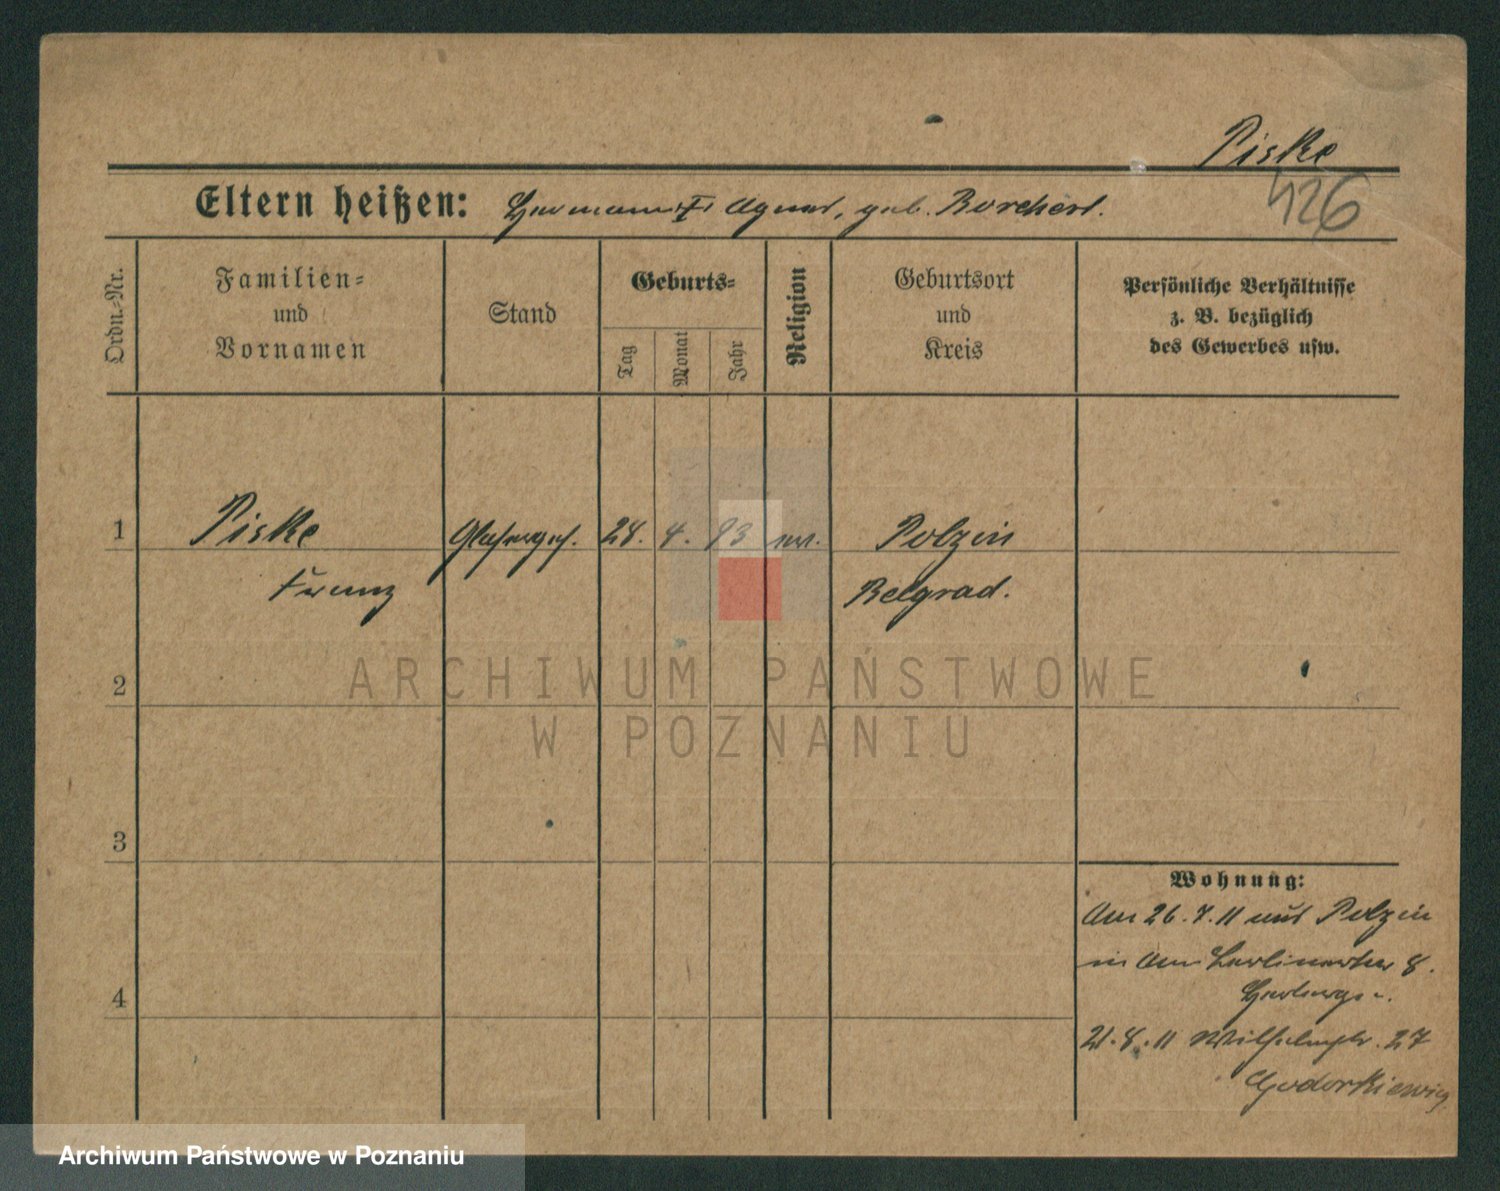 Piske
426
Eltern heißen: Hermann u. Agnes, geb. Borchert.
Ordn.-Nr.
Familien-
und
Vornamen
Stand
Geburts-
Tag
Monat
Jahr
Religion
Geburtsort
und
Kreis
Persönliche Verhältnisse
z. B. bezüglich
des Gewerbes usw.
1
Piske
Glaserges.
28.
4.
93
ev.
Polzin
Franz
Belgrad.
2
ARCHIWUM PAŃSTWOWE
W POZNANIU
3
Wohnung:
Am 26.7.11 aus Polzin
in Berlinerstr 8.
Herberge
4
21.8.11 Wilhelmstr. 27
Archiwum Państwowe w Poznaniu